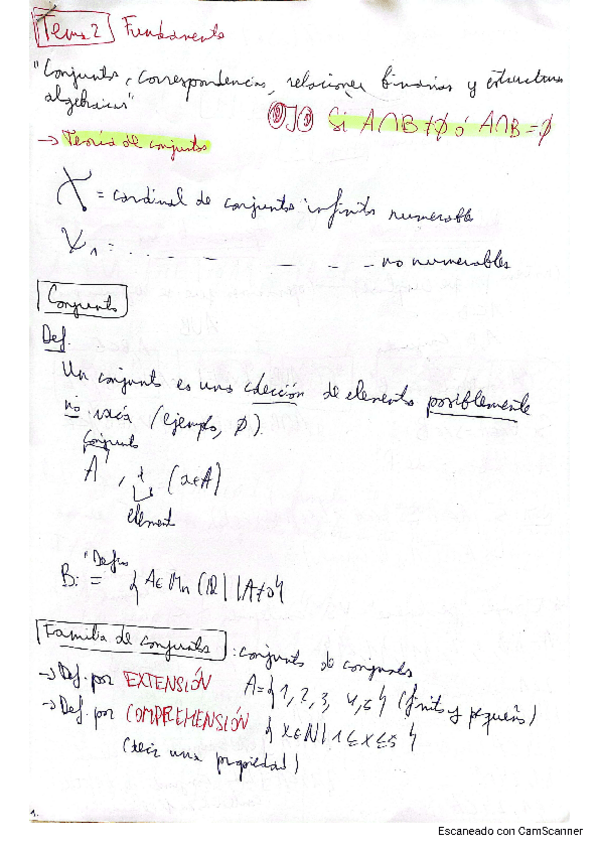 Tema 2 Fundamentos
"Conjuntos, correspondencias, relaciones binarias y estructuras
algebraicas"
OJO Si A∩B≠∅ ó A∩B=∅
→ Teoría de conjuntos
= cardinal de conjuntos infinitos numerable
1 = . . . _ _ _ _ _ no numerables
Conjunto
Def.
Un conjunto es una colección de elementos posiblemente
no vacía (ejemplo, ∅).
Conjunto
A, x (x∈A)
element
B := { A∈Mn (ℝ) | |A|≠0 }
Familia de conjuntos : conjunto de conjuntos
→ Def. por EXTENSIÓN A={1, 2, 3, 4, 5} (finito y pequeño)
→ Def. por COMPREHENSIÓN { x∈ℕ | 1≤x≤5 }
(decir una propiedad)
1.
Escaneado con CamScanner